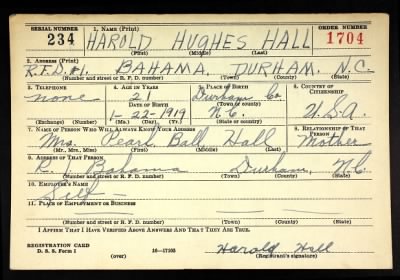 SERIAL NUMBER 1. NAME (Print) ORDER NUMBER
234 HAROLD HUGHES HALL 1704
(First) (Middle) (Last)
2. ADDRESS (Print)
R.F.D. #1. BAHAMA, DURHAM, N.C.
(Number and street or R. F. D. number) (Town) (County) (State)
3. TELEPHONE 4. AGE IN YEARS 5. PLACE OF BIRTH 6. COUNTRY OF CITIZENSHIP
none 21 Durham Co
DATE OF BIRTH (Town) (County)
1-22-1919 N.C. U.S.A.
(Exchange) (Number) (Mo.) (Day) (Yr.) (State or country)
7. NAME OF PERSON WHO WILL ALWAYS KNOW YOUR ADDRESS 8. RELATIONSHIP OF THAT PERSON
Mrs. Pearl Ball Hall Mother
(Mr., Mrs., Miss) (First) (Middle) (Last)
9. ADDRESS OF THAT PERSON
R. Bahama Durham, N.C.
(Number and street or R. F. D. number) (Town) (County) (State)
10. EMPLOYER'S NAME
Self
11. PLACE OF EMPLOYMENT OR BUSINESS
(Number and street or R. F. D. number) (Town) (County) (State)
I AFFIRM THAT I HAVE VERIFIED ABOVE ANSWERS AND THAT THEY ARE TRUE.
REGISTRATION CARD
D. S. S. Form 1 (over) 16—17105 Harold Hall
(Registrant's signature)